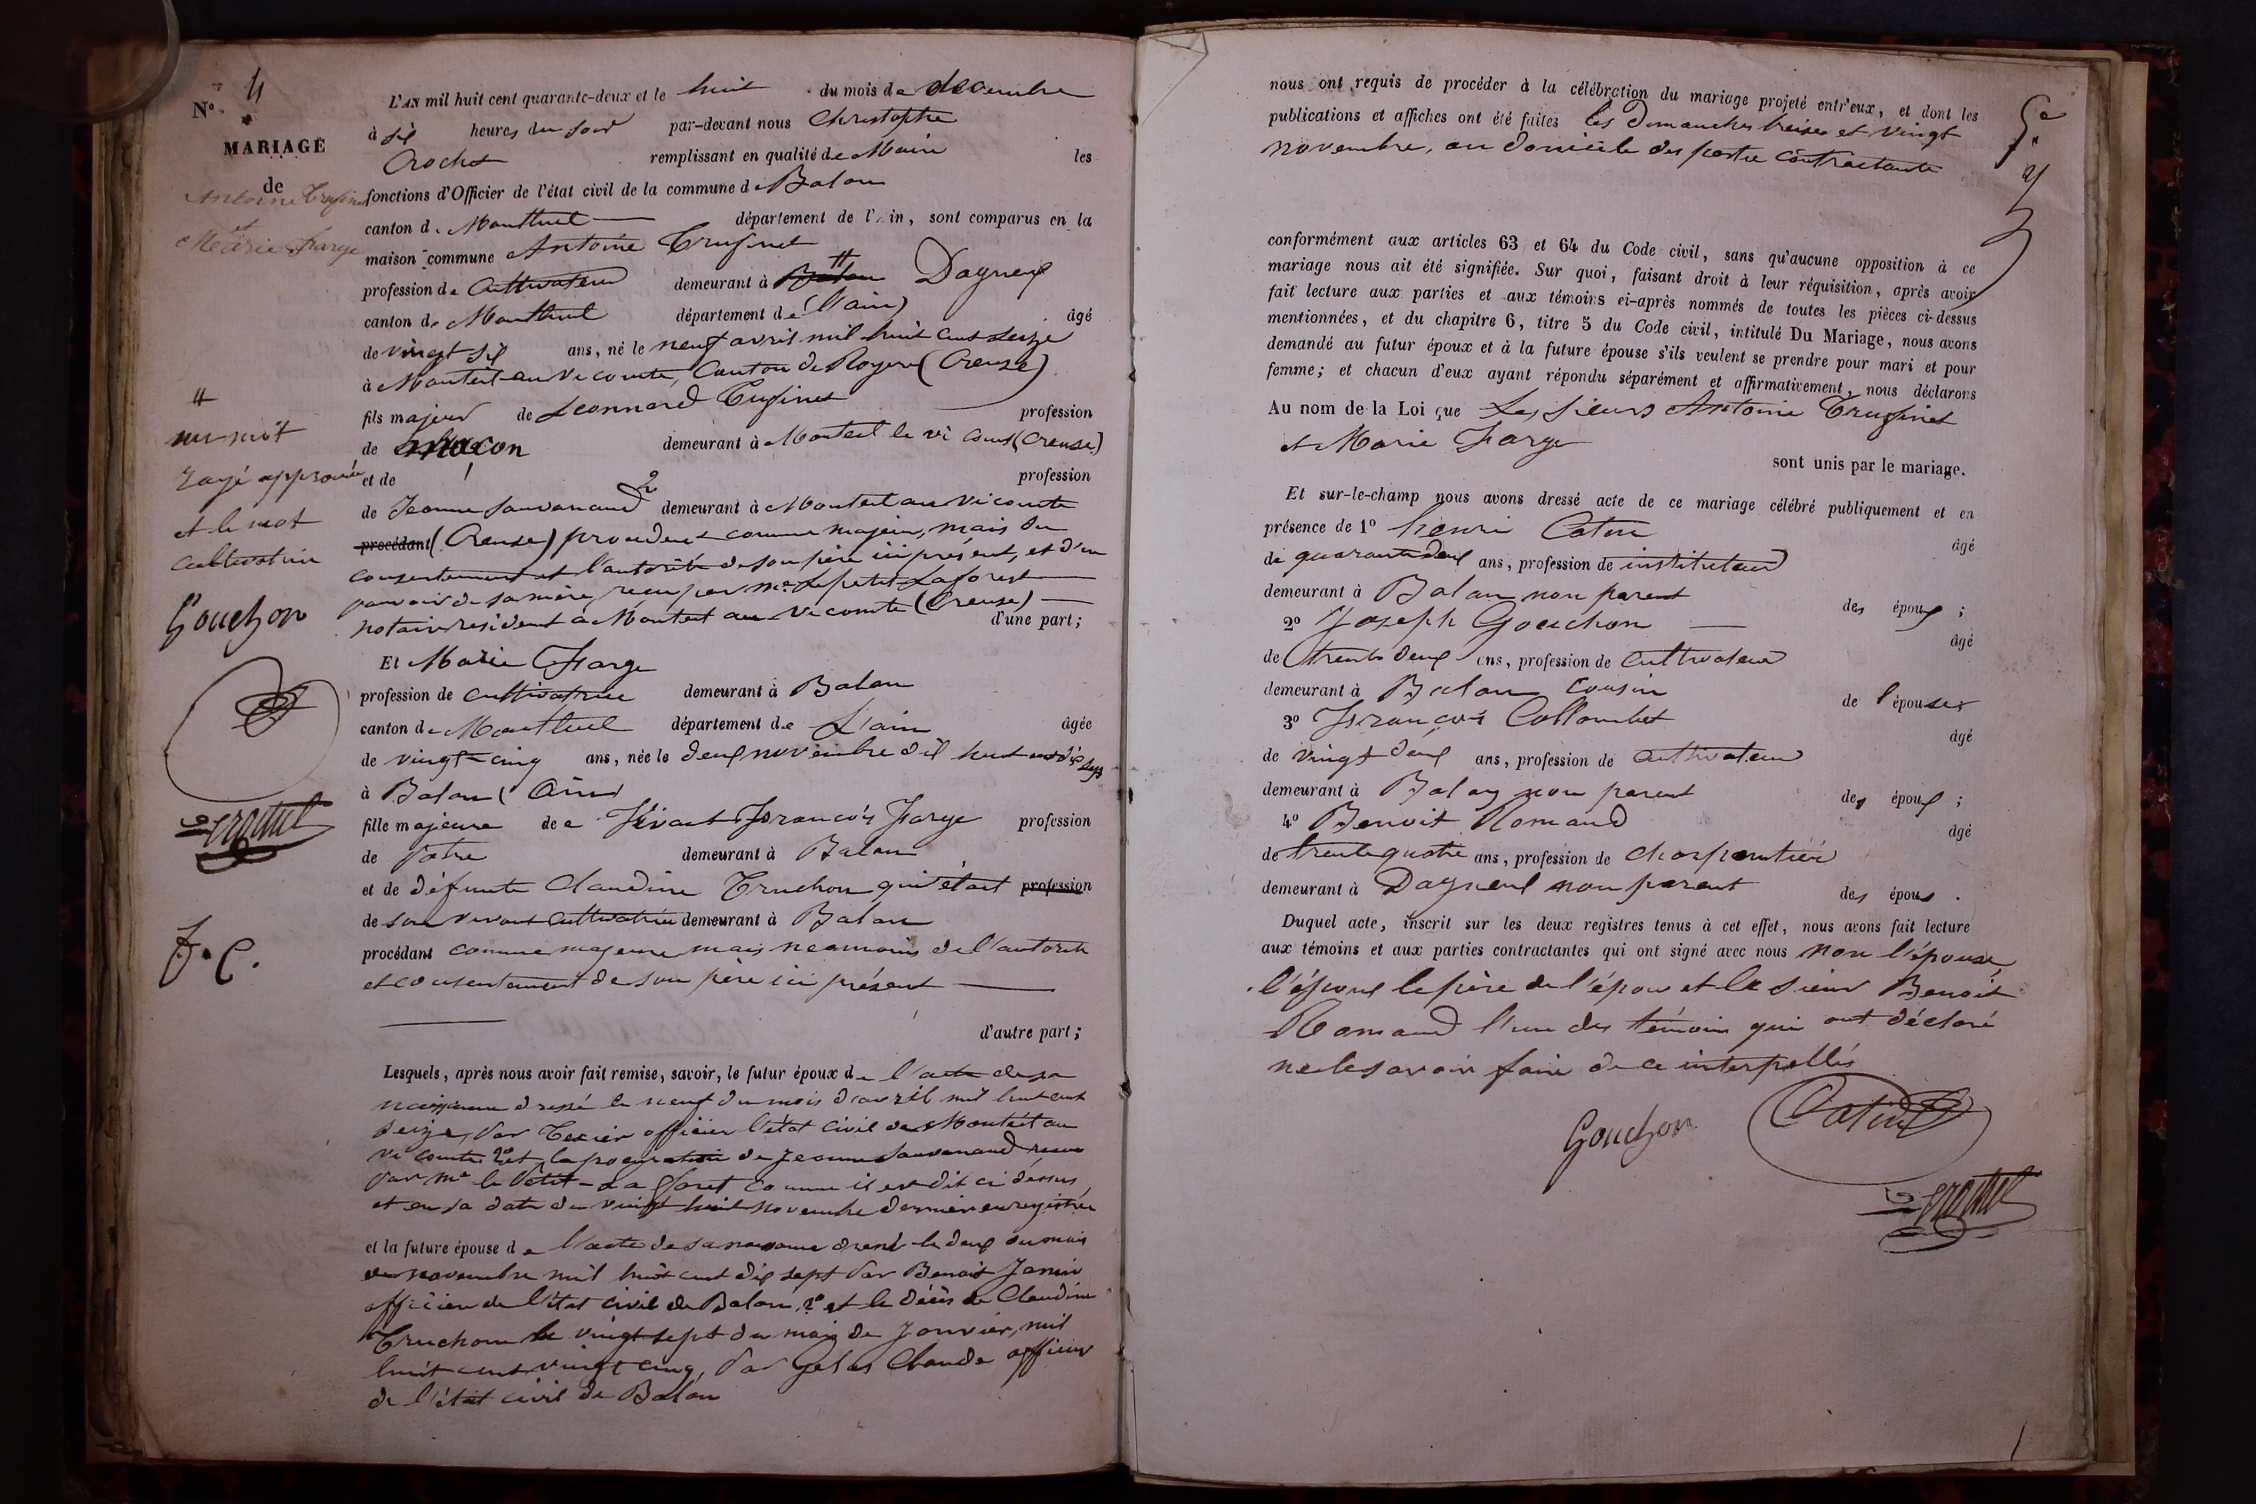 N° 4
MARIAGE
de
Antoine Trufinet
et
Marie Farge
L'AN mil huit cent quarante-deux et le huit du mois de decembre
à six heures du soir par-devant nous Christophe
Crochet remplissant en qualité de Maire les
fonctions d'Officier de l'état civil de la commune de Balan
canton de Montluel département de l'Ain, sont comparus en la
maison commune Antoine Trufinet
profession de Cultivateur demeurant à Balan # Dagneux
canton de Montluel département de (l'ain) âgé
de vingt six ans, né le neuf avril mil huit cent seize
à Monteil-au Vicomte, Canton de Royere (Creuse)
fils majeur de Leonnard Trufinet profession
de macon demeurant à Monteil le vi comt (Creuse)
et de profession
de Jeanne Sauvanaud demeurant à Monteil au Vicomte
procédant (Creuse) procedent comme majeur, mais du
consentement et l'autorité de son père ici présent, et d'un
pouvoir de sa mère, recu par me Le petit Laforest
notaire resident à Monteil au Vicomte (Creuse) d'une part;
Et Marie Farge
profession de cultivatrice demeurant à Balan
canton de Montluel département de L'ain âgée
de vingt-cinq ans, née le deux novembre dix huit cent dix sept
à Balan (Ain)
fille majeure de Vivant François Farge profession
de Patre demeurant à Balan
et de défunte Claudine Truchon qui était profession
de son vivant cultivatrice demeurant à Balan
procédant comme majeure mais neamoins de l'autorité
et consentement de son père ici présent
d'autre part;
Lesquels, après nous avoir fait remise, savoir, le futur époux de l'acte de sa
naissance dressé le neuf du mois d'avril mil huit cent
seize, par Texier officier l'état civil de Monteil au
vi comte 2° et la procuration de Jeanne Sauvanaud recue
par me le Petit-La foret comme il est dit ci dessus,
et en sa date du vingt huit novembre dernier enregistrée
et la future épouse de l'acte de sa naissance dressé le deux du mois
de novembre mil huit cent dix sept par Benoit Janin
officier de l'état civil de Balan, 2° et le décès de Claudine
Truchon le vingt sept du mois de Janvier, mil
huit cent vingt cinq, par Gelas Claude officier
de l'état civil de Balan
#
un mot
rayé approuvé
et le mot
cultivatrice
Gouchon
Crochet
f. C.
nous ont requis de procéder à la célébration du mariage projeté entr'eux, et dont les
publications et affiches ont été faites les Dimanches treize et vingt
novembre, au domicile des partie contractante
conformément aux articles 63 et 64 du Code civil, sans qu'aucune opposition à ce
mariage nous ait été signifiée. Sur quoi, faisant droit à leur réquisition, après avoir
fait lecture aux parties et aux témoins ci-après nommés de toutes les pièces ci-dessus
mentionnées, et du chapitre 6, titre 5 du Code civil, intitulé Du Mariage, nous avons
demandé au futur époux et à la future épouse s'ils veulent se prendre pour mari et pour
femme; et chacun d'eux ayant répondu séparément et affirmativement, nous déclarons
Au nom de la Loi que Les sieurs Antoine Trufinet
et Marie Farge
sont unis par le mariage.
Et sur-le-champ nous avons dressé acte de ce mariage célébré publiquement et en
présence de 1° henri Catin âgé
de quarante deux ans, profession de instituteur
demeurant à Balan non parent des époux;
2° Joseph Gouchon âgé
de trente deux ans, profession de cultivateur
demeurant à Balan cousin de l'épouse;
3° François Collombet âgé
de vingt deux ans, profession de cultivateur
demeurant à Balan non parent des époux;
4° Benoit Romand âgé
de trente quatre ans, profession de charpentier
demeurant à Dagneux non parent des époux.
Duquel acte, inscrit sur les deux registres tenus à cet effet, nous avons fait lecture
aux témoins et aux parties contractantes qui ont signé avec nous non l'épouse,
l'époux le père de l'époux et le sieur Benoit
Romand l'un des témoins qui ont déclaré
ne le savoir faire de ce interpellés
Gouchon Catin
Crochet